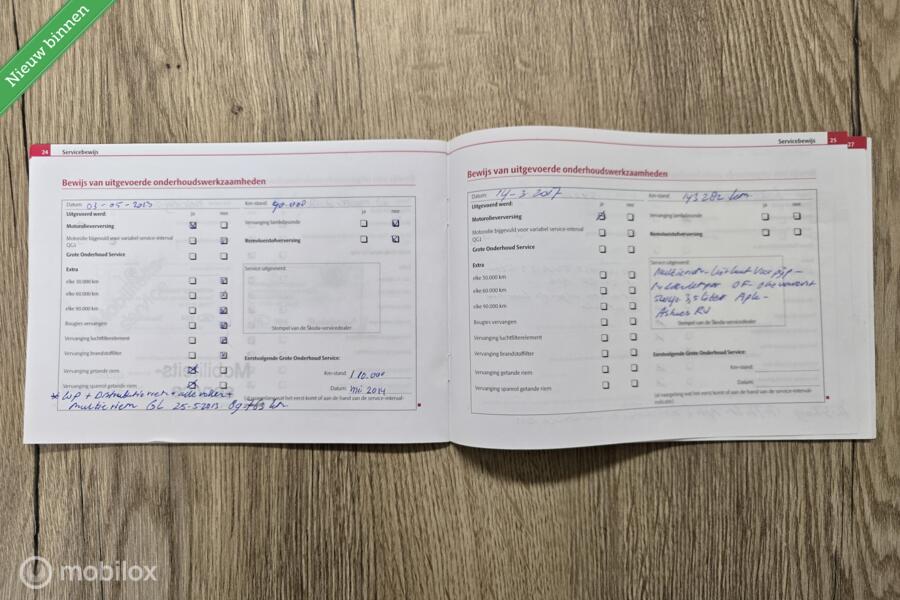 Nieuw binnen
24 Servicebewijs
Bewijs van uitgevoerde onderhoudswerkzaamheden
Datum: 03-05-2013 Km-stand: 90.000
Uitgevoerd werd: ja nee ja nee
Motorolieverversing
Vervanging lambdasonde
Motorolie bijgevuld voor variabel service-interval
QG1
Remvloeistofverversing
Grote Onderhoud Service
Extra
Service uitgevoerd:
elke 30.000 km
elke 60.000 km
elke 90.000 km
Bougies vervangen
Stempel van de Škoda-servicedealer
Vervanging luchtfilterelement
Vervanging brandstoffilter
Eerstvolgende Grote Onderhoud Service:
Vervanging getande riem
Km-stand: 110.000
Vervanging spanrol getande riem
Datum: Mei 2014
* WP + Distributieriem + alle rollen +
(al naargelang wat het eerst komt of aan de hand van de service-interval-
Multiriem 25-5-2013
Servicebewijs 25
27
Bewijs van uitgevoerde onderhoudswerkzaamheden
Datum: 14-3-2017 Km-stand: 143282 km
Uitgevoerd werd: ja nee ja nee
Motorolieverversing
Vervanging lambdasonde
Motorolie bijgevuld voor variabel service-interval
QG1
Remvloeistofverversing
Grote Onderhoud Service
Extra
Service uitgevoerd:
elke 30.000 km
elke 60.000 km
elke 90.000 km
Bougies vervangen
Stempel van de Škoda-servicedealer
Vervanging luchtfilterelement
Vervanging brandstoffilter
Eerstvolgende Grote Onderhoud Service:
Vervanging getande riem
Km-stand:
Vervanging spanrol getande riem
Datum:
(al naargelang wat het eerst komt of aan de hand van de service-interval-
indicatie)
mobilox